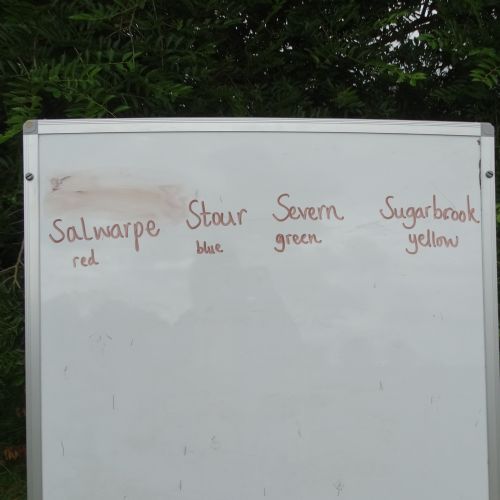 Salwarpe Stour Severn Sugarbrook
red blue green yellow